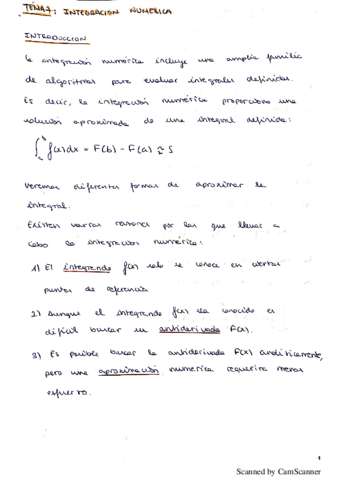 TEMA 7: INTEGRACION NUMERICA
INTRODUCCION
la integración numérica incluye una amplia familia
de algoritmos para evaluar integrales definidas.
Es decir, la integración numérica proporciona una
solución aproximada de una integral definida:
∫_a^b f(x)dx = F(b) - F(a) ≃ S
Veremos diferentes formas de aproximar la
integral.
Existen varias razones por las que llevar a
cabo la integración numérica:
1) El integrando f(x) solo se conoce en ciertos
puntos de referencia
2) Aunque el integrando f(x) sea conocido es
difícil buscar su antiderivada F(x).
3) Es posible buscar la antiderivada F(x) analíticamente,
pero una aproximación numérica requeriria menos
esfuerzo.
1
Scanned by CamScanner